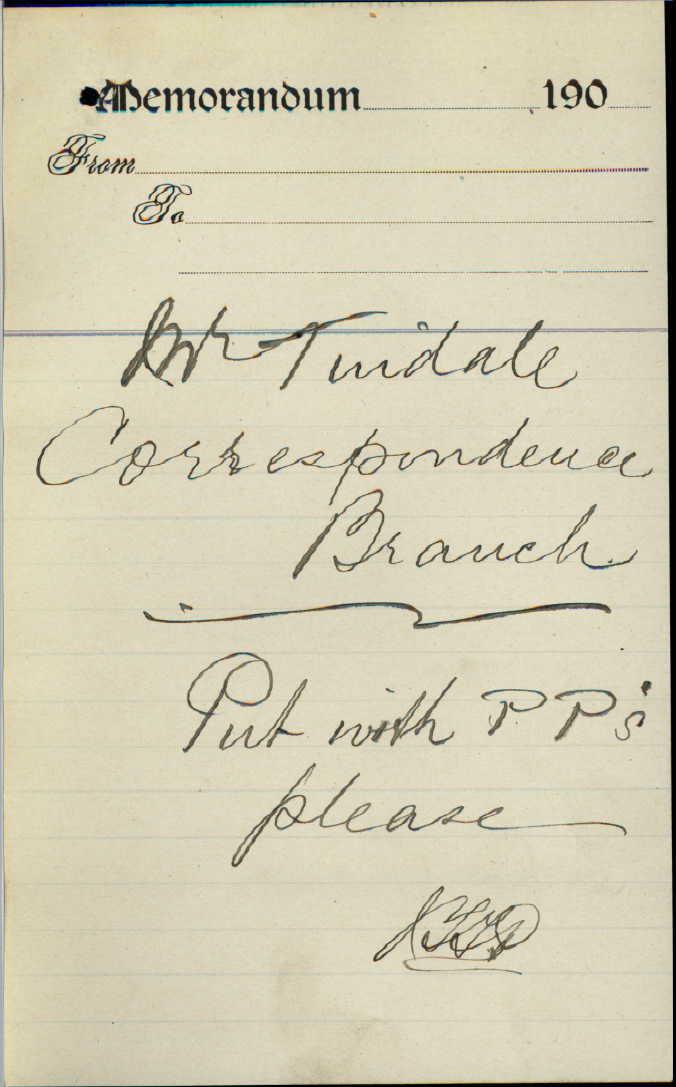 Memorandum 190
From
To
Mr Tindale
Correspondence
Branch
Put with P P's
please